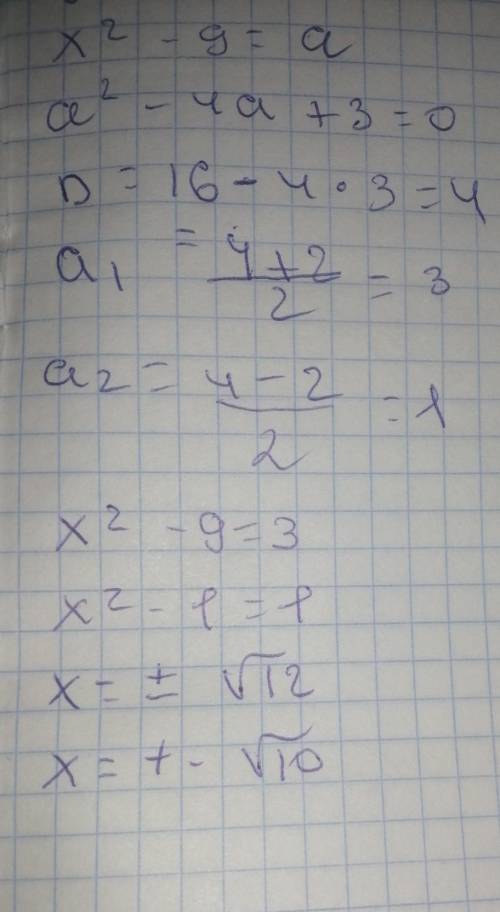 x² - 9 = a
a² - 4a + 3 = 0
D = 16 - 4 · 3 = 4
a₁ = (4+2)/2 = 3
a₂ = (4-2)/2 = 1
x² - 9 = 3
x² - 1 = 1
x = ± √12
x = + - √10